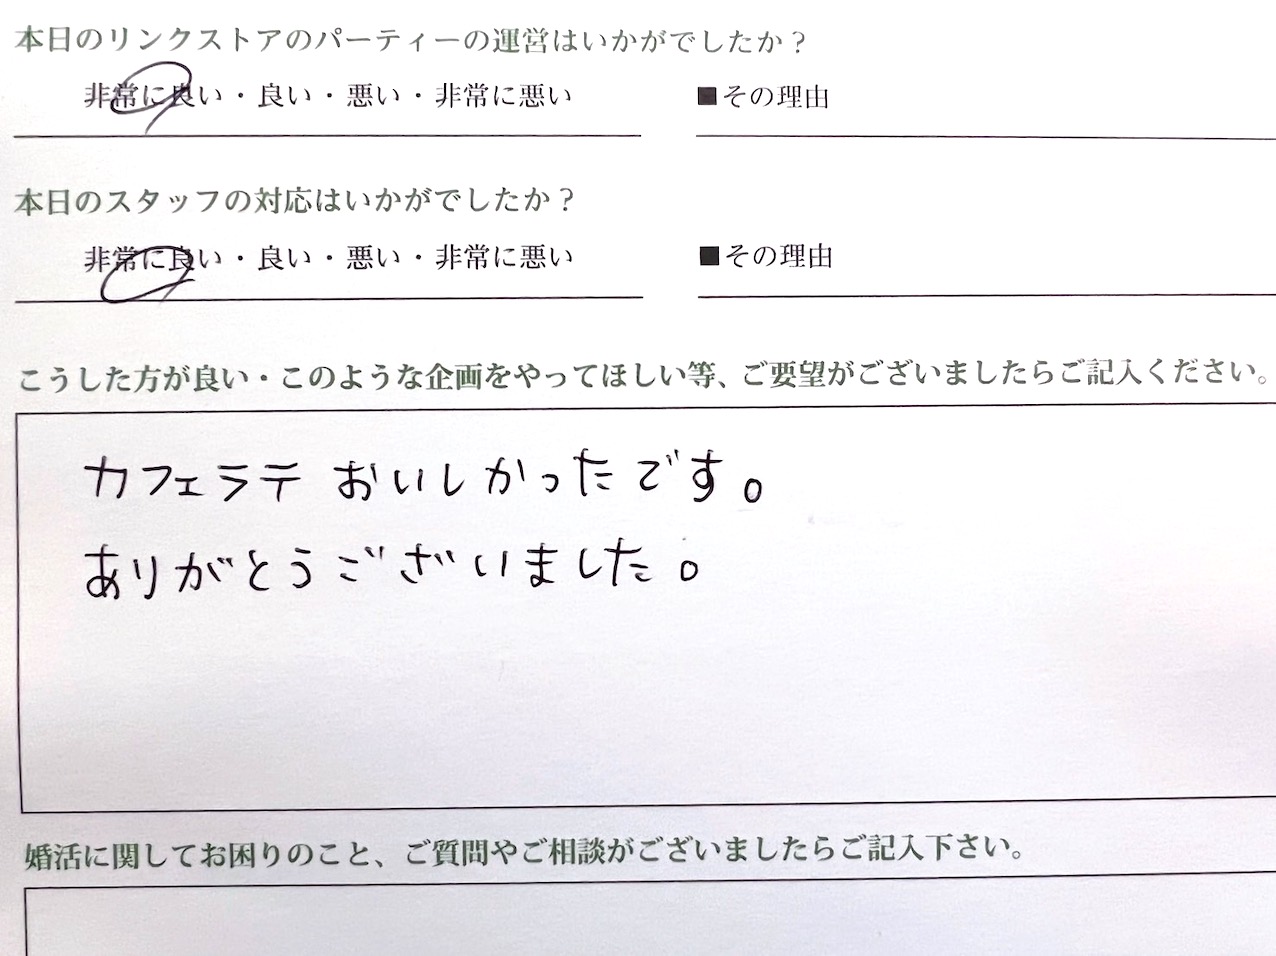 本日のリンクストアのパーティーの運営はいかがでしたか？
非常に良い・良い・悪い・非常に悪い
■その理由
本日のスタッフの対応はいかがでしたか？
非常に良い・良い・悪い・非常に悪い
■その理由
こうした方が良い・このような企画をやってほしい等、ご要望がございましたらご記入ください。
カフェラテおいしかったです。
ありがとうございました。
婚活に関してお困りのこと、ご質問やご相談がございましたらご記入下さい。